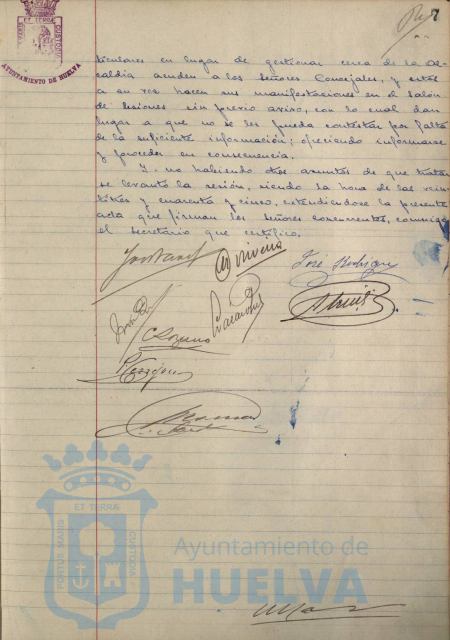 7
AYUNTAMIENTO DE HUELVA
ticulares en lugar de gestionar cerca de la Al-
caldia acuden a los señores Concejales, y estos
a su vez hacen sus manifestaciones en el salón
de sesiones sin previo aviso, con lo cual dan
lugar a que no se les pueda contestar por falta
de la suficiente información; ofreciendo informarse
y proceder en consecuencia.
Y no habiendo otros asuntos de que tratar
se levantó la sesión, siendo la hora de las vein-
titres y cuarenta y cinco, extendiendose la presente
acta que firman los señores concurrentes, conmigo
el secretario que certifico.
José
PORTUS MARIS
ET TERRÆ
CUSTODIA
Ayuntamiento de
HUELVA